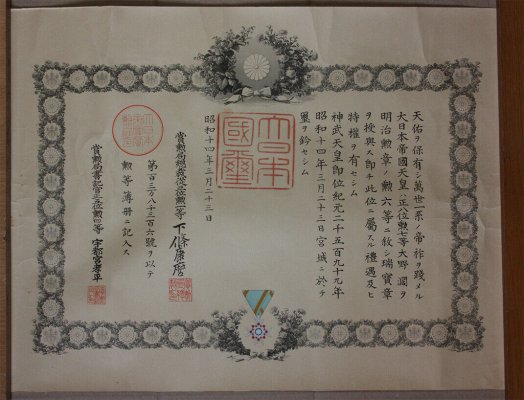 天佑ヲ保有シ萬世一系ノ帝祚ヲ踐メル
大日本帝國天皇ハ正位勲七等大野圓ヲ
明治勲章ノ勲六等ニ敘シ瑞寶章
ヲ授與ス卽チ此位ニ屬スル禮遇及ヒ
特權ヲ有セシム
神武天皇卽位紀元二千五百九十九年
昭和十四年三月二十三日宮城ニ於テ
璽ヲ鈐セシム
大日本國璽
昭和十四年三月二十三日
賞勲局總裁從三位勲一等下條康麿
第百三万八千三百六號ヲ以テ
勲等簿册ニ記入ス
賞勲局書記官正五位勲四等宇都宮孝平